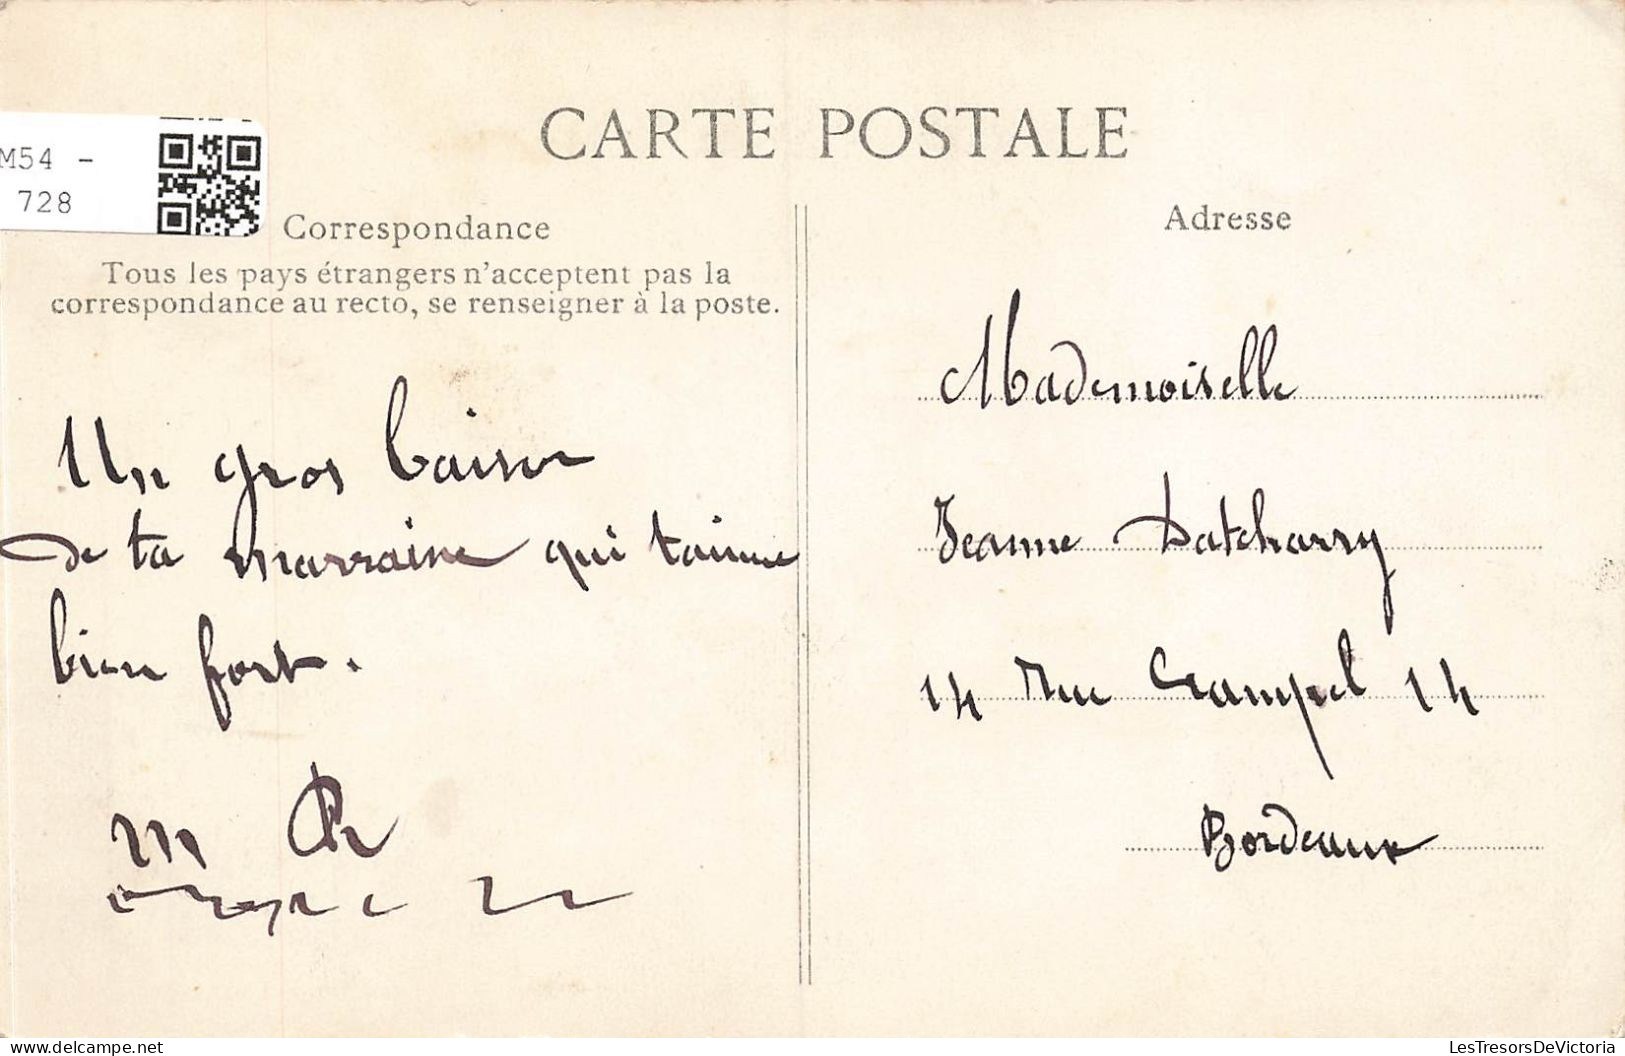 M54 -
728
CARTE POSTALE
Correspondance
Tous les pays étrangers n'acceptent pas la
correspondance au recto, se renseigner à la poste.
Un gros baiser
de ta marraine qui t'aime
bien fort.
M R
Adresse
Mademoiselle
Jeanne Datcharry
14 rue Crampel 14
Bordeaux
LesTresorsDeVictoria